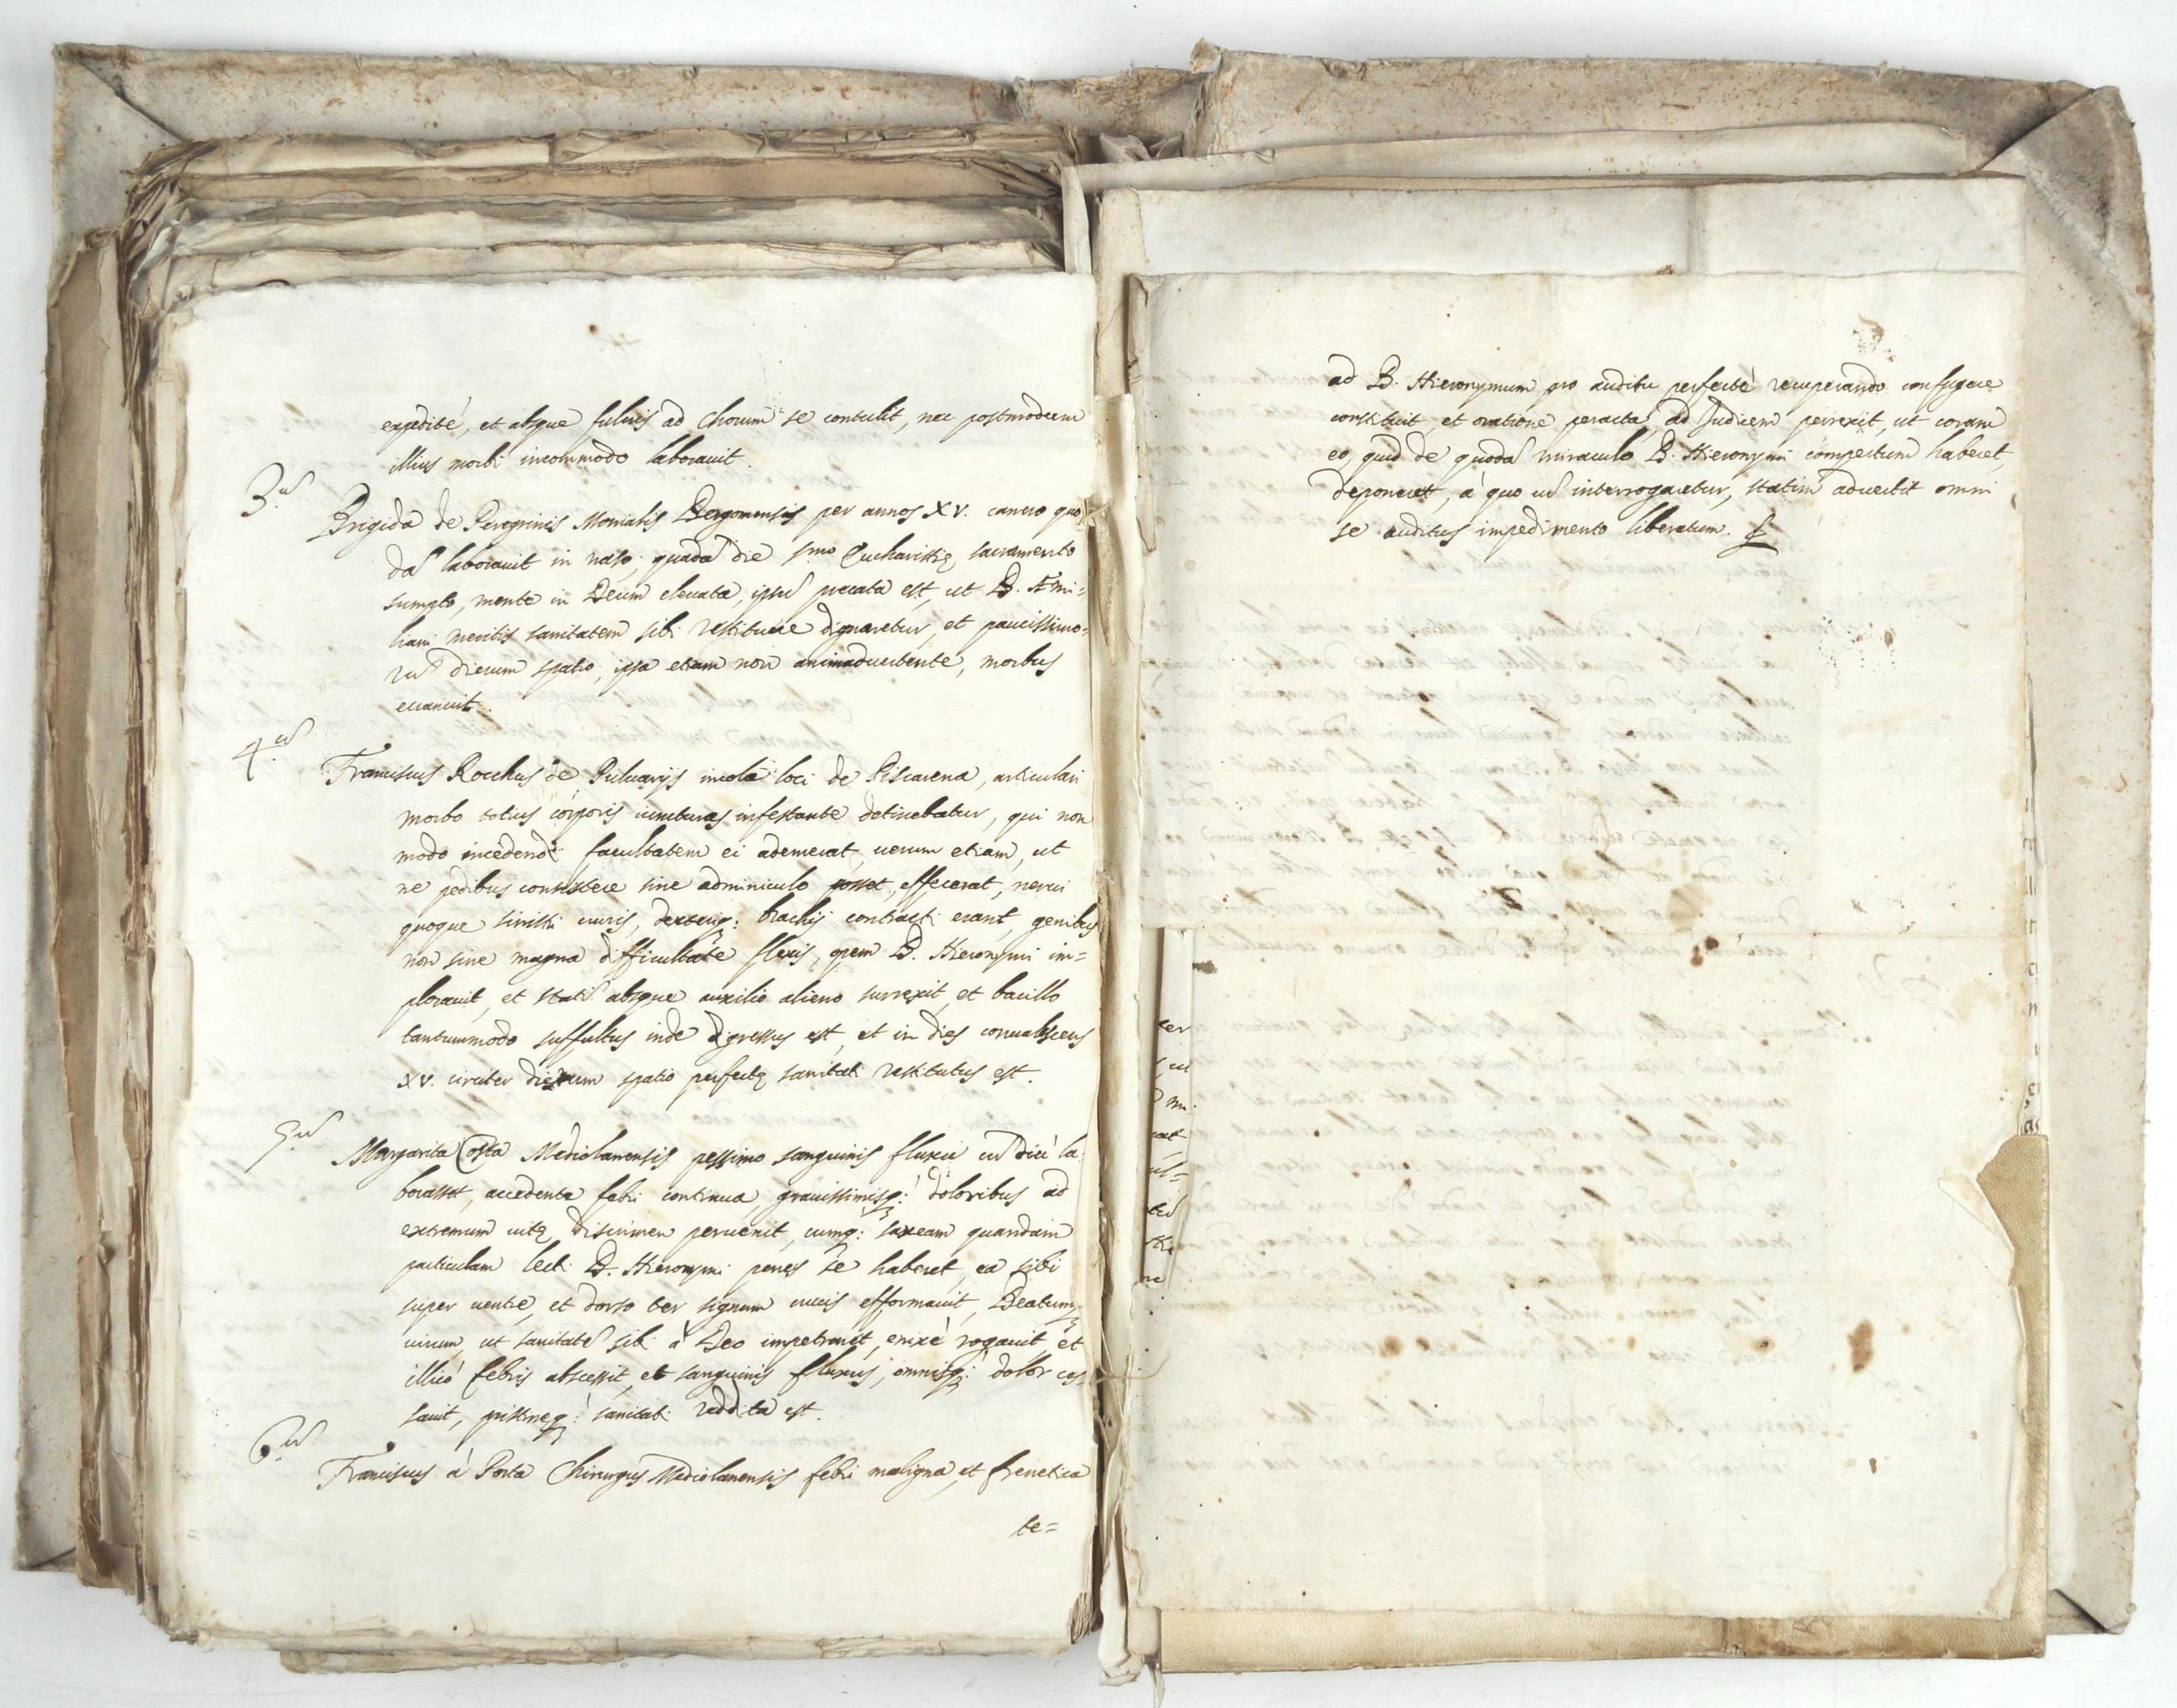 expeditè, et absque fulcris ad Chorum se contulit, nec postmodum
illius morbi incommodo laborauit.
3.ũ
Brigida de Peregrinis Monialis Bergomensis per annos XV. cancro quo=
dã laborauit in naso; quadã die s.mo Eucharistię sacramento
sumpto, mente in Deum eleuata, ipsũ precata est, ut B. Æmi=
liani meritis sanitatem sibi restituere dignaretur, et paucissimo=
rũ dierum spatio, ipsa etiam non animaduertente, morbus
euanuit.
4.ũ
Franciscus Rocchus de Puluarijs incola loci de Piscarena, articulari
morbo totius corporis iuncturas infestante detinebatur, qui non
modo incedendi facultatem ei ademerat, uerum etiam, ut
ne pedibus consistere sine adminiculo posset, effecerat, nerui
quoque sinistri cruris, dexteriq: brachij contracti erant, genibus
non sine magna difficultate flexis, opem B. Hieronymi im=
plorauit, et statĩ absque auxilio alieno surrexit, et bacillo
tantummodo suffultus inde digressus est, et in dies conualescens
XV. circiter dierum spatio perfectę sanitati restitutus est.
5.ũ
Margarita Costa Mediolanensis pessimo sanguinis fluxu cũ diù la=
borasset, accedente febri continua, grauissimisq: doloribus ad
extremum uitę discrimen peruenit, cumq: saxeam quandam
particulam lecti B. Hieronymi penes se haberet, ea sibi
super uentre, et dorso ter signum crucis efformauit, Beatumq;
uirum, ut sanitatẽ sibi à Deo impetraret, enixè rogauit, et
illicò febris abscessit, et sanguinis fluxus, omnisq: dolor ces=
sauit, pristineq: sanitati reddita est.
6.ũ
Franciscus à Porta Chirurgus Mediolanensis febri maligna, et frenetica
te=
ad B. Hieronymum pro auditu perfectè recuperando confugere
constituit, et oratione peracta, ad Judicem perrexit, ut coram
eo, quid de quodã miraculo B. Hieronymi compertum haberet,
deponeret, à quo cũ interrogaretur, statim aduertit omni
se auditus impedimento liberatum.